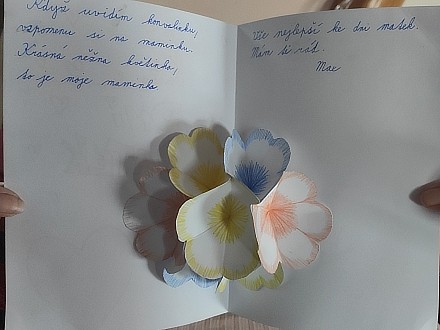 Když uvidím konvalinku,
vzpomenu si na maminku.
Krásná něžna květinka,
to je moje mamenka
Vše nejlepší ke dni matek.
Mám tě rád.
Max